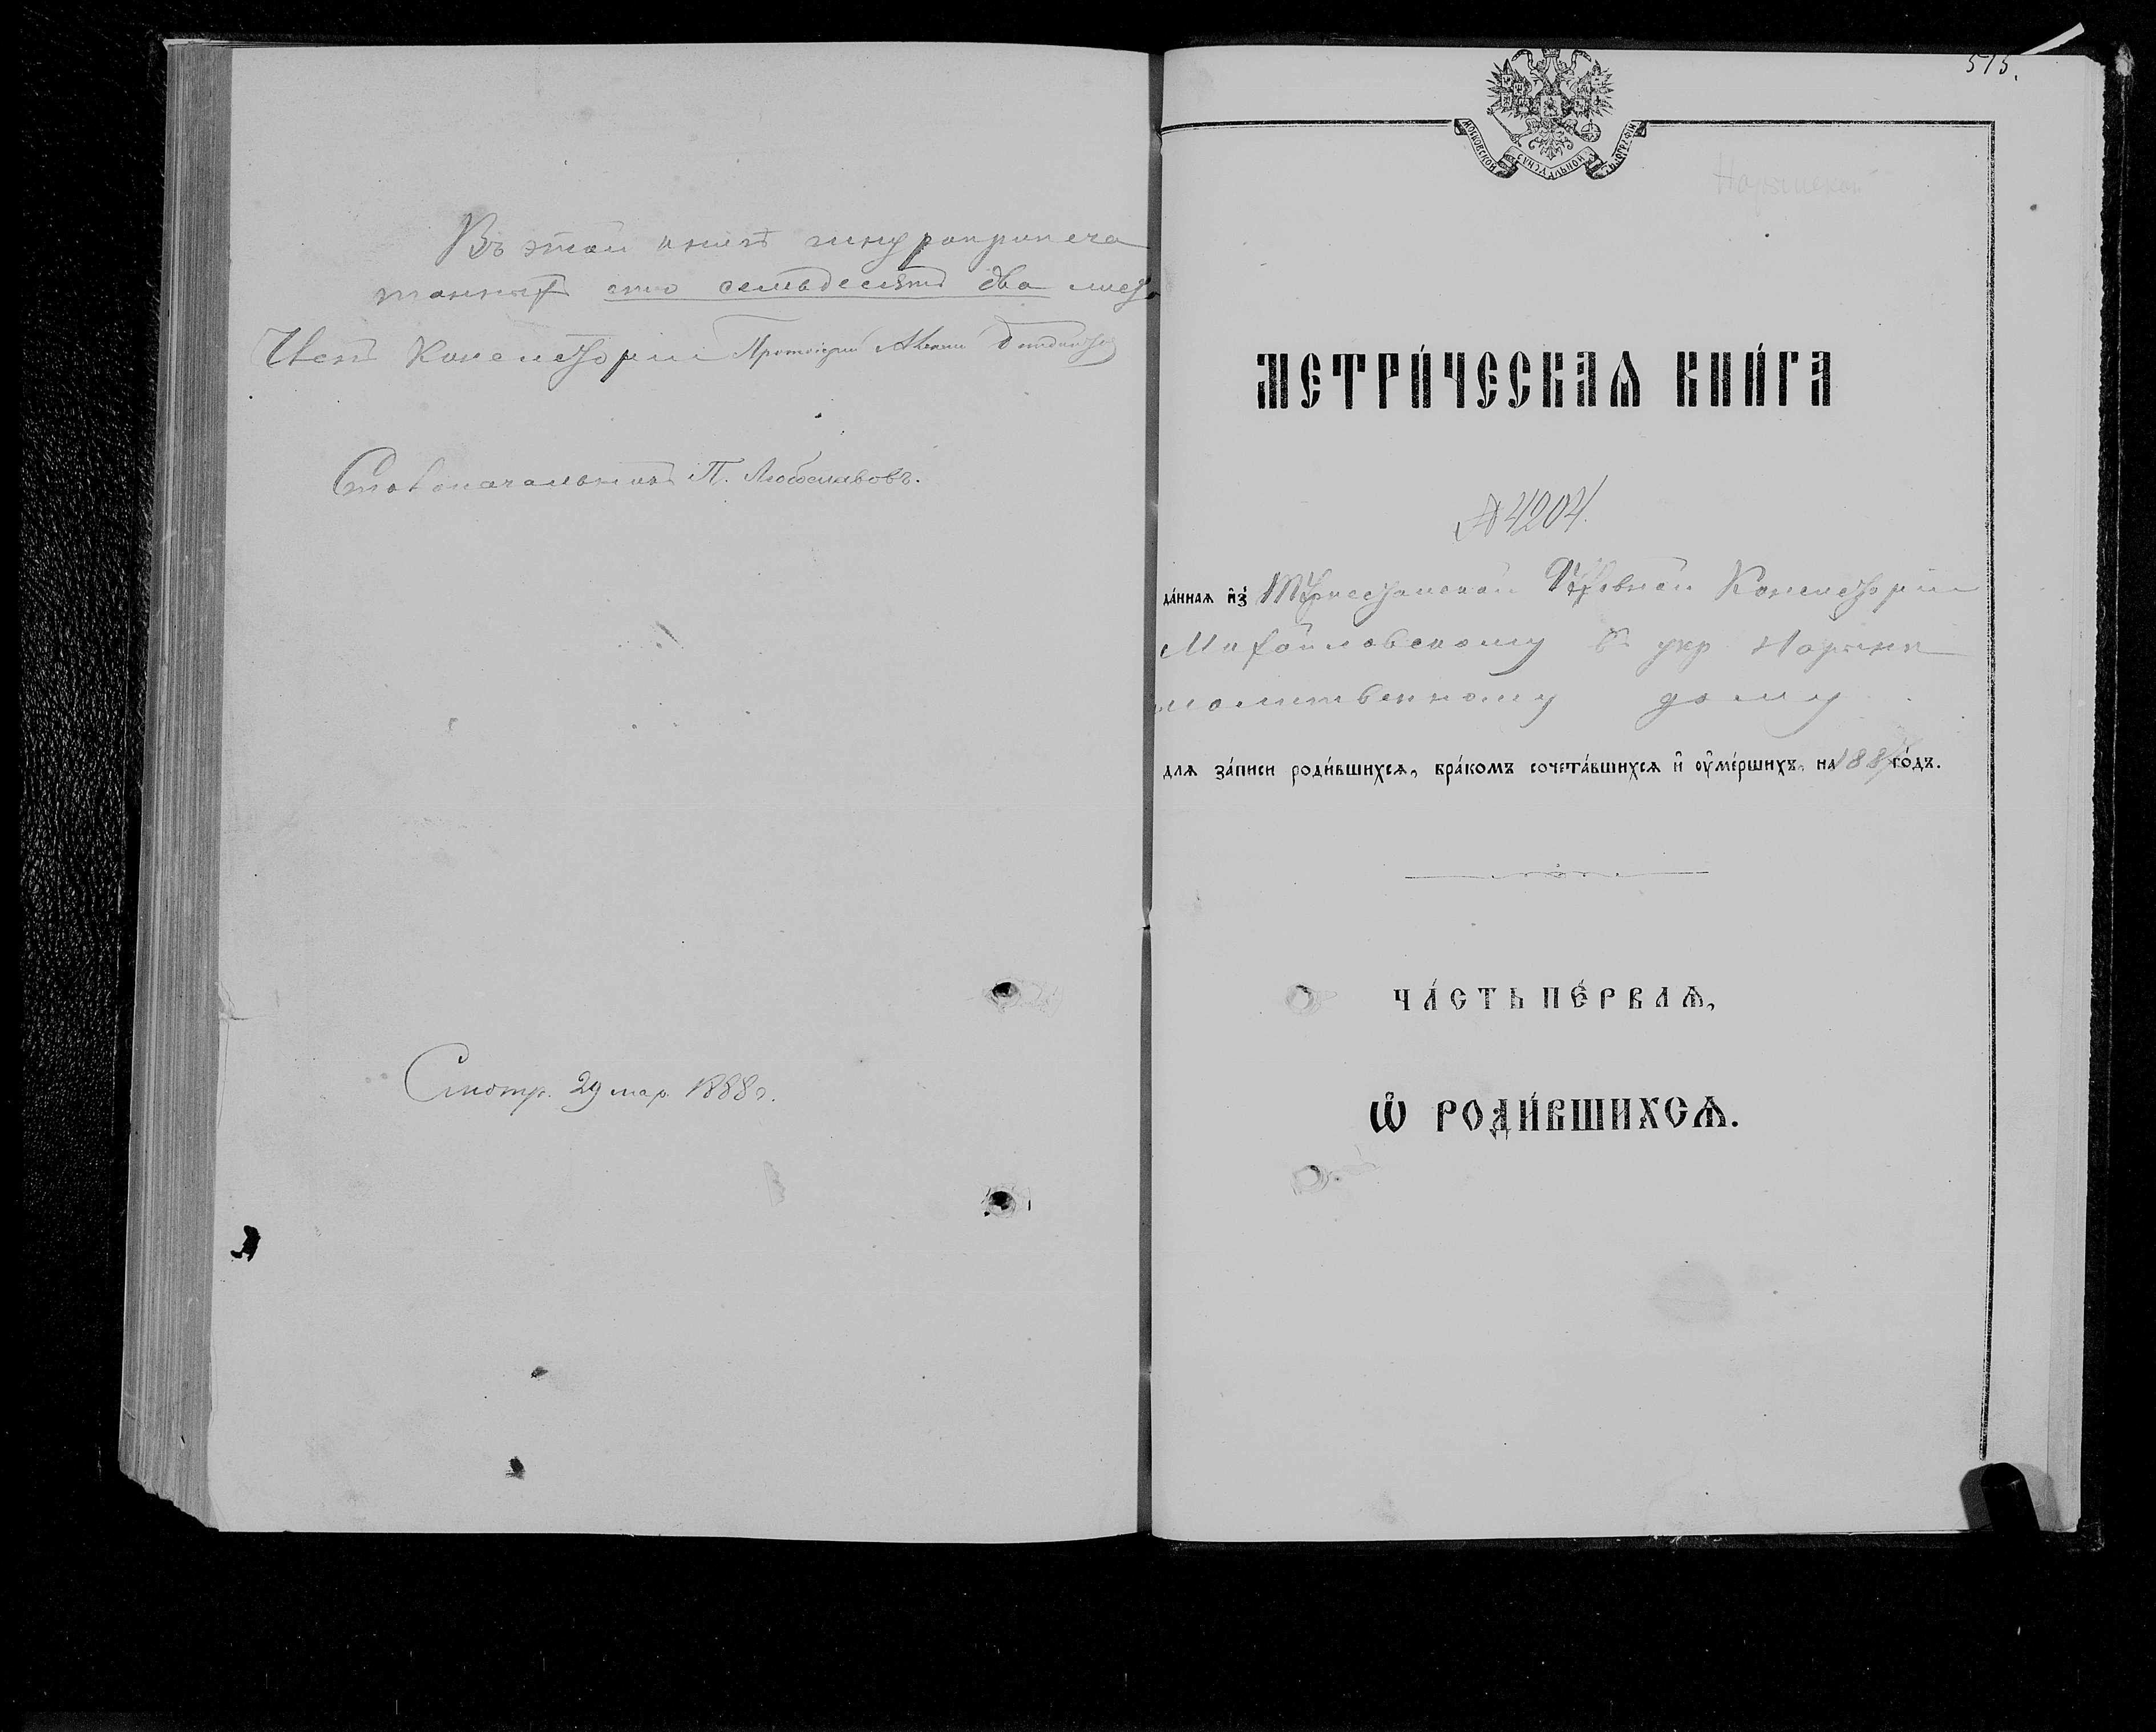 Въ этой книгѣ шнуроприпеча
танныхъ сто семьдесятъ два листа
Членъ Консисторіи Протоіерей
Столоначальникъ П. Любославовъ.
Смотр. 29 мар. 1888 г.
515.
МОСКОВСКОЙ СѴНОДАЛЬНОЙ ТѴПОГРАФІИ
Нарынской
МЕТРИ́ЧЕСКАѦ КНИ́ГА
№ 4204.
да́ннаѧ и҆з̾ Туркестанской Духовной Консисторіи
Михайловскому въ укр. Нарынѣ
молитвенному дому
для за́писи роди́вшихсѧ, бра́комъ сочета́вшихсѧ и҆ ᲂу҆ме́ршихъ, на 1887 го́дъ.
ЧА́СТЬ ПЕ́РВАѦ,
Ѽ РОДИ́ВШИХСѦ.